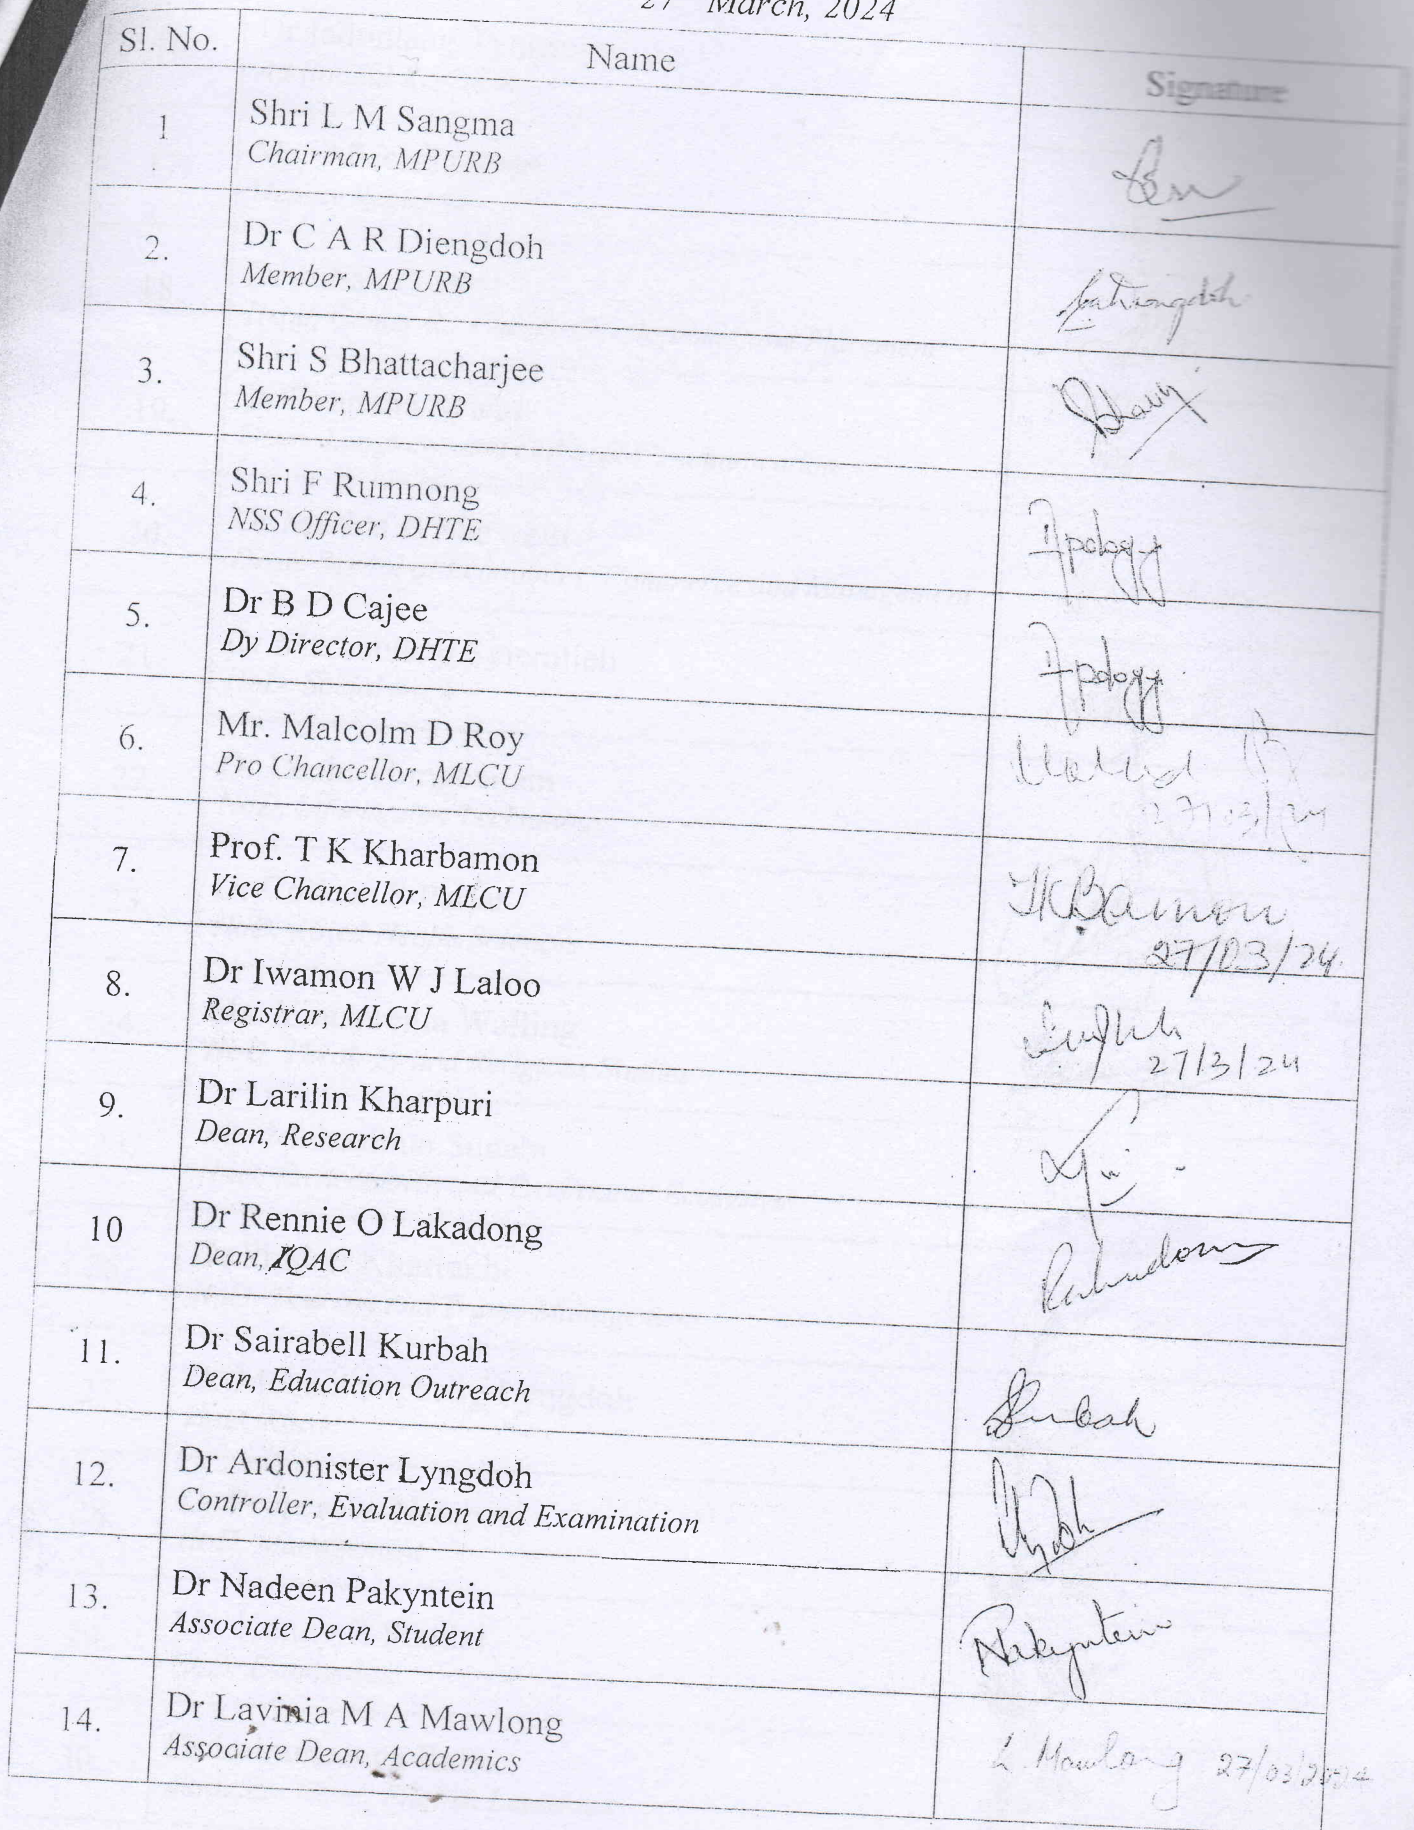 27th March, 2024
Sl. No. Name Signature
1 Shri L M Sangma
Chairman, MPURB
2. Dr C A R Diengdoh
Member, MPURB
3. Shri S Bhattacharjee
Member, MPURB
4. Shri F Rumnong Apology
NSS Officer, DHTE
5. Dr B D Cajee Apology
Dy Director, DHTE
6. Mr. Malcolm D Roy
Pro Chancellor, MLCU
27/03/24
7. Prof. T K Kharbamon TKBamon
Vice Chancellor, MLCU
27/03/24
8. Dr Iwamon W J Laloo
Registrar, MLCU
27/3/24
9. Dr Larilin Kharpuri
Dean, Research
10 Dr Rennie O Lakadong
Dean, IQAC
11. Dr Sairabell Kurbah
Dean, Education Outreach
12. Dr Ardonister Lyngdoh
Controller, Evaluation and Examination
13. Dr Nadeen Pakyntein
Associate Dean, Student
NPakyntein
14. Dr Lavinia M A Mawlong
Associate Dean, Academics
L. Mawlong 27/03/2024